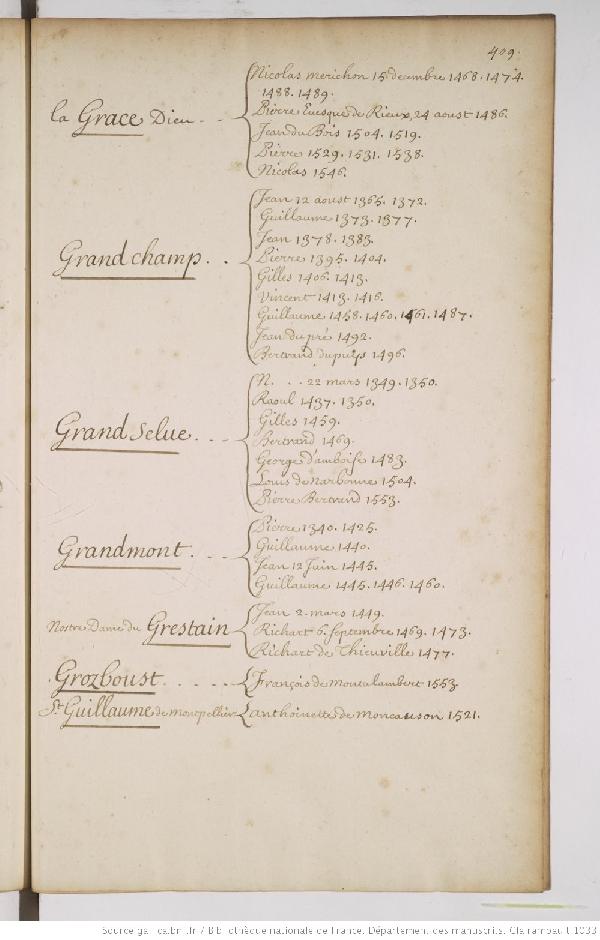 409.
la Grace Dieu . . .
Nicolas merichon 15. decembre 1468. 1474.
1488. 1489.
Pierre Euesque de Rieux, 24 aoust 1486.
Jean du Bois 1504. 1519.
Pierre 1529. 1531. 1538.
Nicolas 1546.
Grandchamp . .
Jean 12 aoust 1365. 1372.
Guillaume 1373. 1377.
Jean 1378. 1383.
Pierre 1395. 1404.
Gilles 1406. 1413.
Vincent 1413. 1416.
Guillaume 1458. 1460. 1461. 1487.
Jean du pré 1492.
Bertrand dupuys 1496.
Grand Selue . . .
N. . . . 22 mars 1349. 1350.
Raoul 1437. 1350.
Gilles 1459.
Bertrand 1469.
George d'amboise 1483.
Louis de narbonne 1504.
Pierre Bertrand 1553.
Grandmont . . .
Pierre 1340. 1425.
Guillaume 1440.
Jean 12 Juin 1445.
Guillaume 1445. 1446. 1460.
Nostre Dame du Grestain
Jean 2. mars 1449.
Richart 6. septembre 1469. 1473.
Richart de Thieuville 1477.
Grozboust . . . . .
François de montalambert 1553.
St. Guillaume de montpellier
anthoinette de moncauson 1521.
Source gallica.bnf.fr / Bibliothèque nationale de France. Département des manuscrits. Clairambault 1033